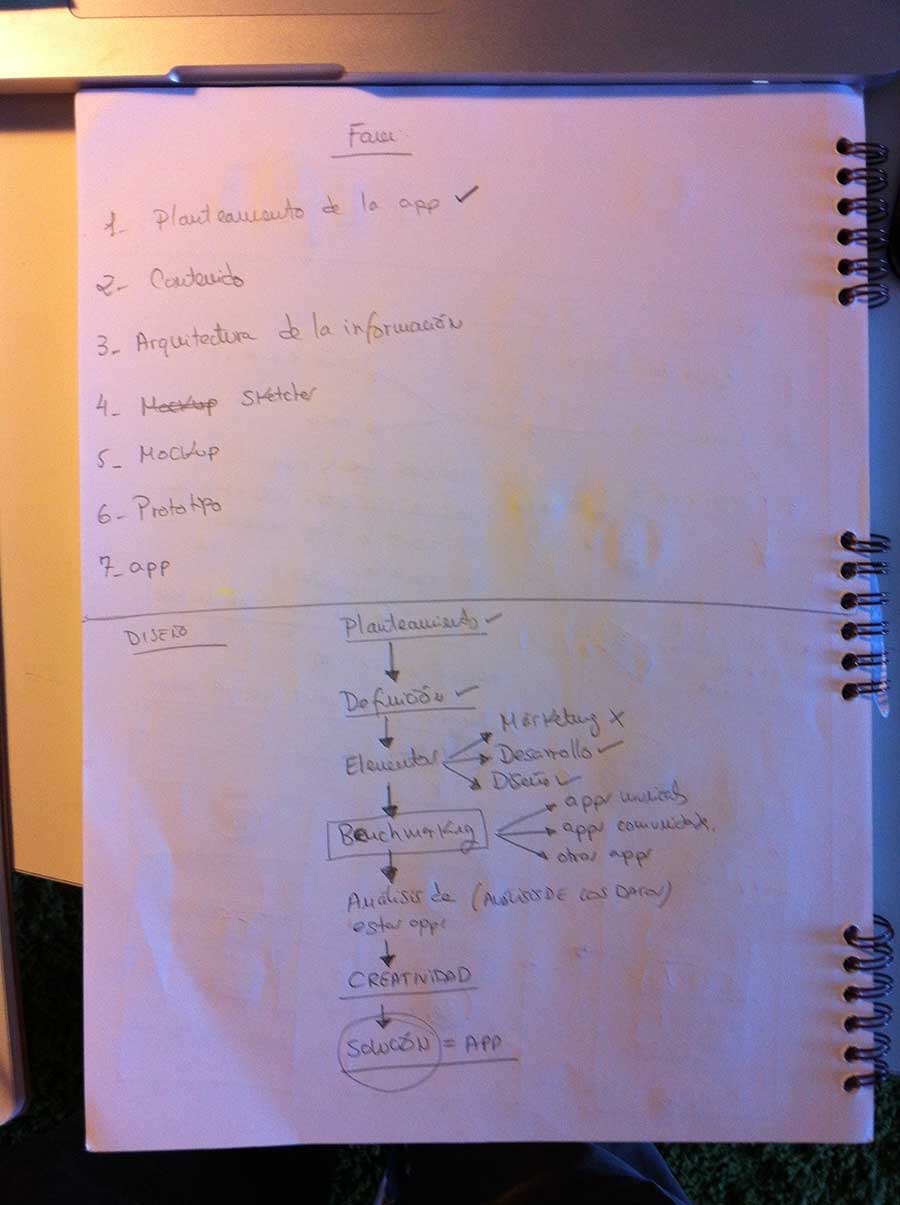 Fases
1- Planteamiento de la app ✓
2- Contenido
3- Arquitectura de la información
4- Mockup Sketches
5- Mockup
6- Prototipo
7- app
DISEÑO
Planteamiento ✓
Definición ✓
Elementos
Marketing X
Desarrollo ✓
Diseño ✓
Benchmarking
apps musicales
apps comunidades.
otras apps
Análisis de (ANÁLISIS DE LOS DATOS)
estas apps
CREATIVIDAD
SOLUCIÓN = APP